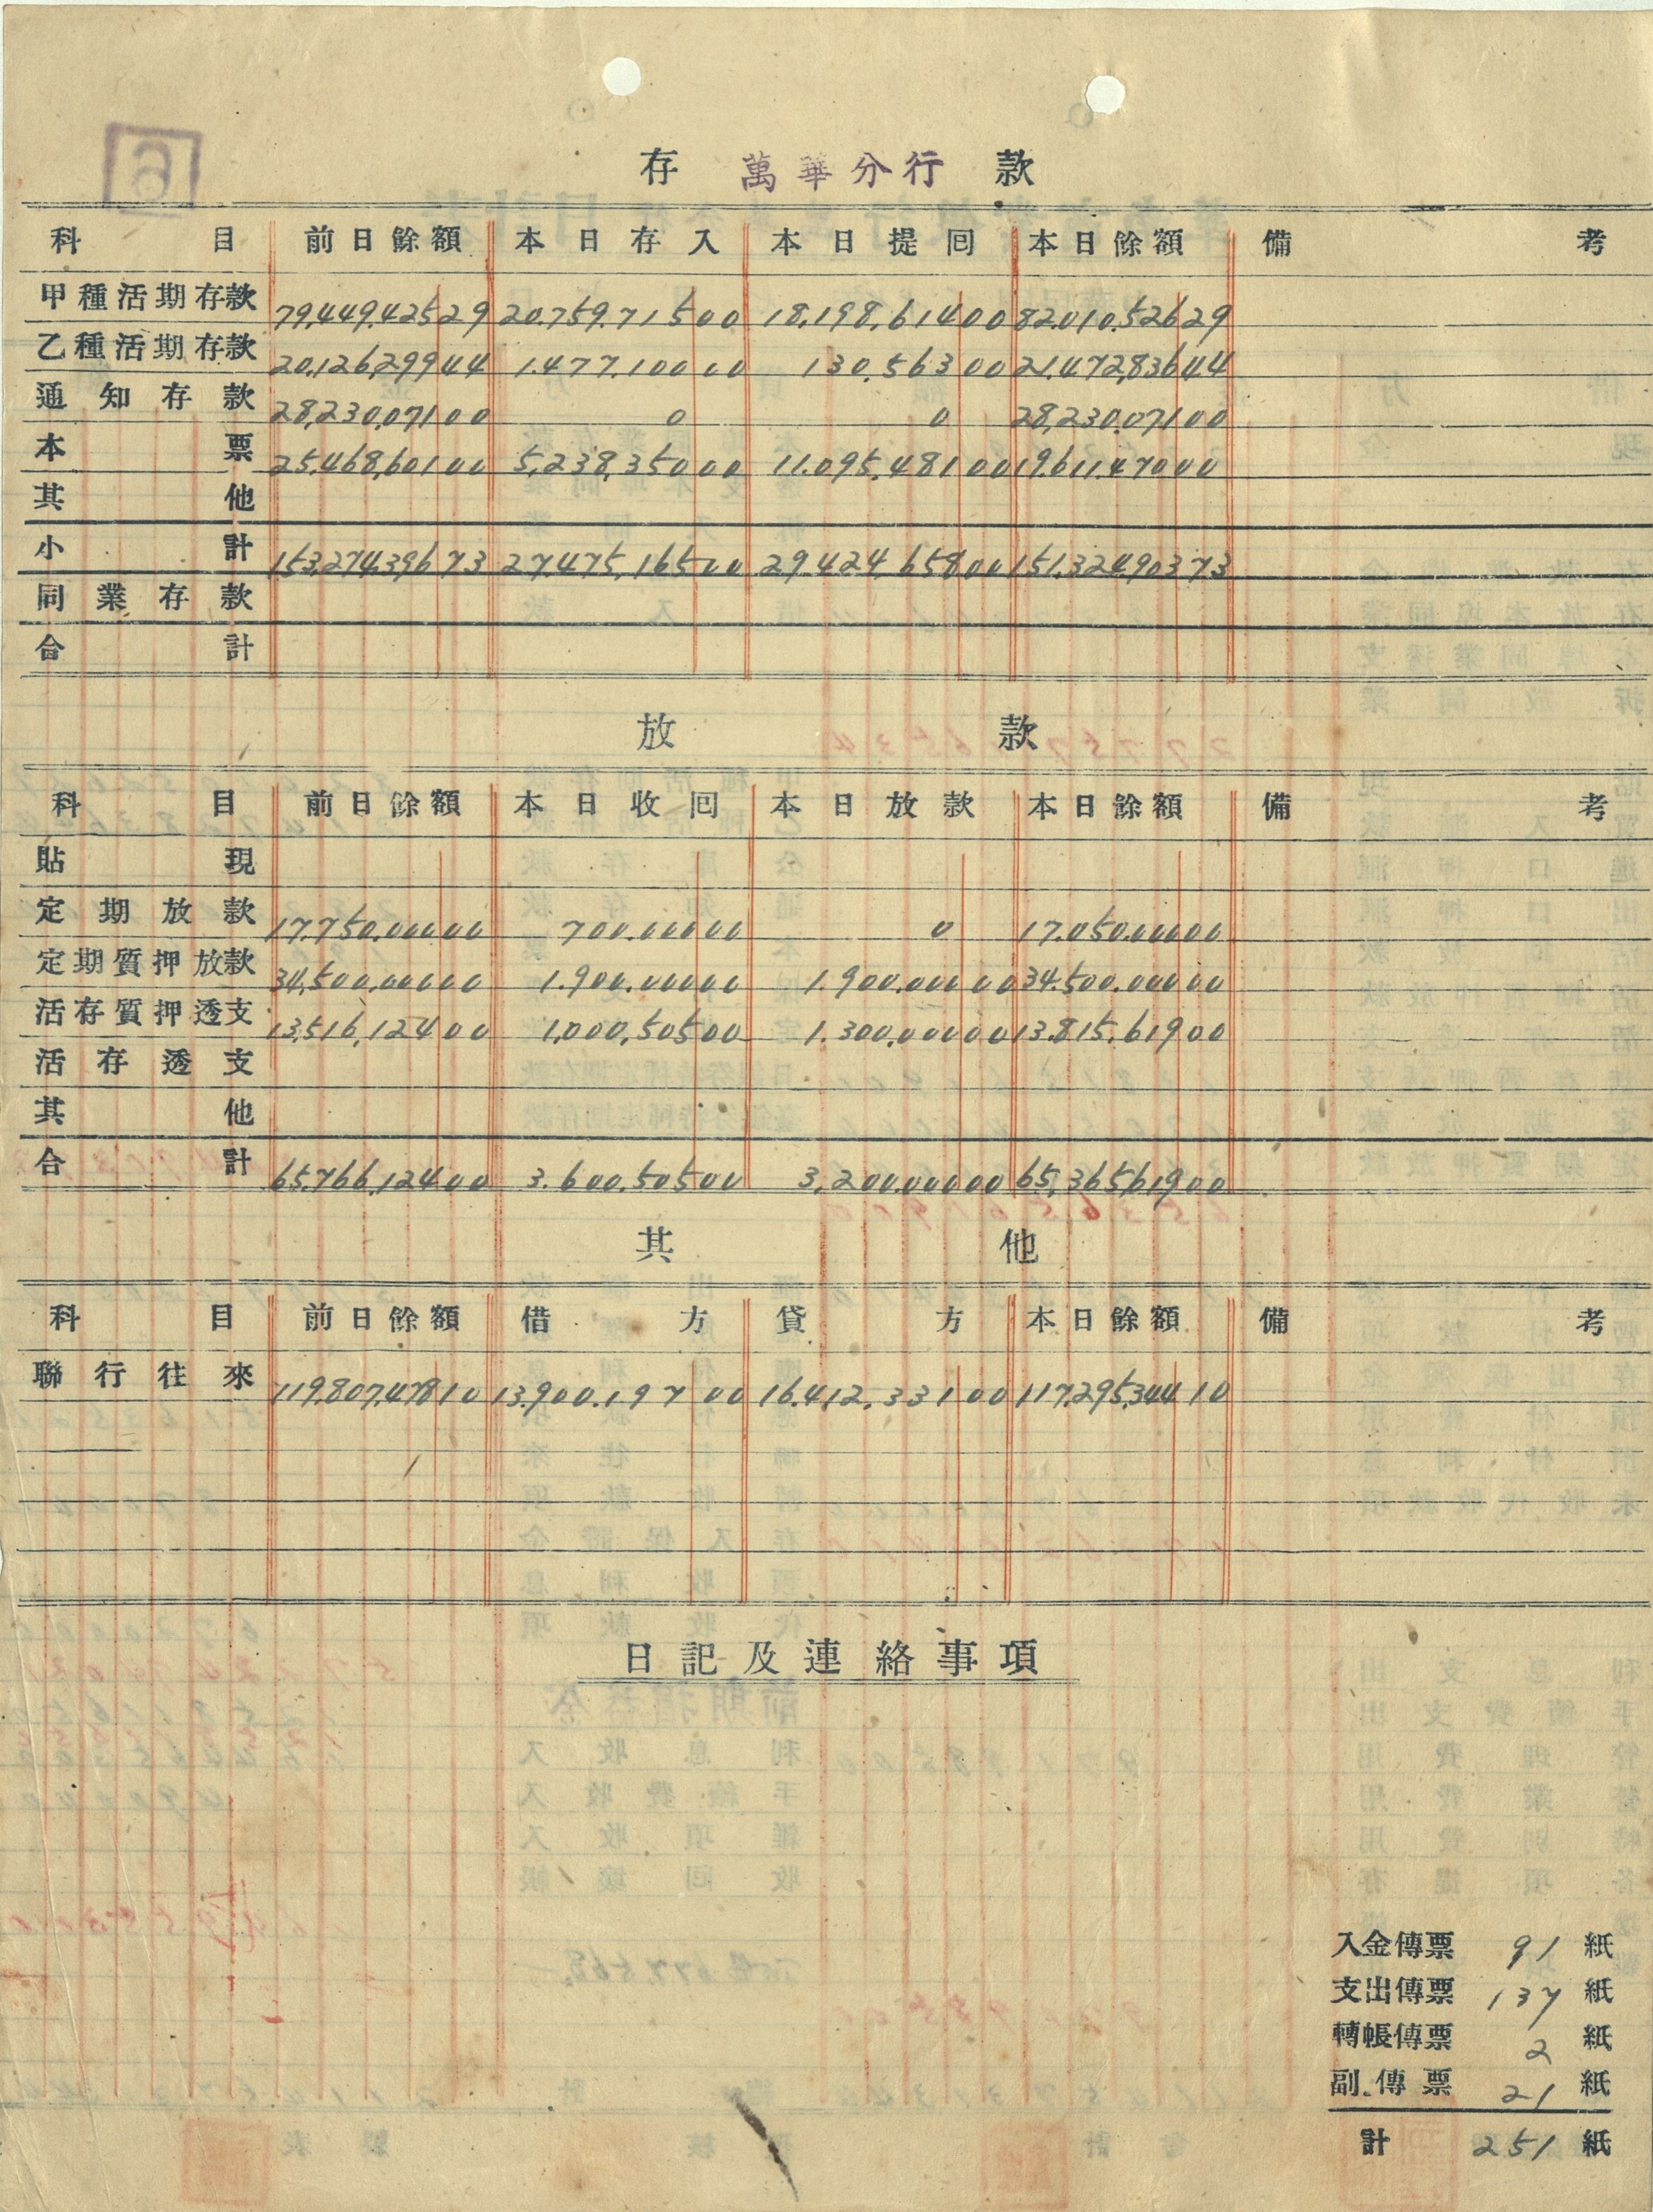 存 萬華分行 款
科目 前日餘額 本日存入 本日提囘 本日餘額 備考
甲種活期存款 79,449,425 29 20,759,715 00 18,198,614 00 82,010,526 29
乙種活期存款 20,126,299 44 1,477,100 00 130,563 00 21,472,836 44
通知存款 28,230,071 00 0 0 28,230,071 00
本票 25,468,601 00 5,238,350 00 11,095,481 00 19,611,470 00
其他
小計 153,274,396 73 27,475,165 00 29,424,658 00 151,324,903 73
同業存款
合計
放款
科目 前日餘額 本日收囘 本日放款 本日餘額 備考
貼現
定期放款 17,750,000 00 700,000 00 0 17,050,000 00
定期質押放款 34,500,000 00 1,900,000 00 1,900,000 00 34,500,000 00
活存質押透支 13,516,124 00 1,000,505 00 1,300,000 00 13,815,619 00
活存透支
其他
合計 65,766,124 00 3,600,505 00 3,200,000 00 65,365,619 00
其他
科目 前日餘額 借方 貸方 本日餘額 備考
聯行往來 119,807,478 10 13,900,197 00 16,412,331 00 117,295,344 10
日記及連絡事項
入金傳票 91 紙
支出傳票 137 紙
轉帳傳票 2 紙
副傳票 21 紙
計 251 紙